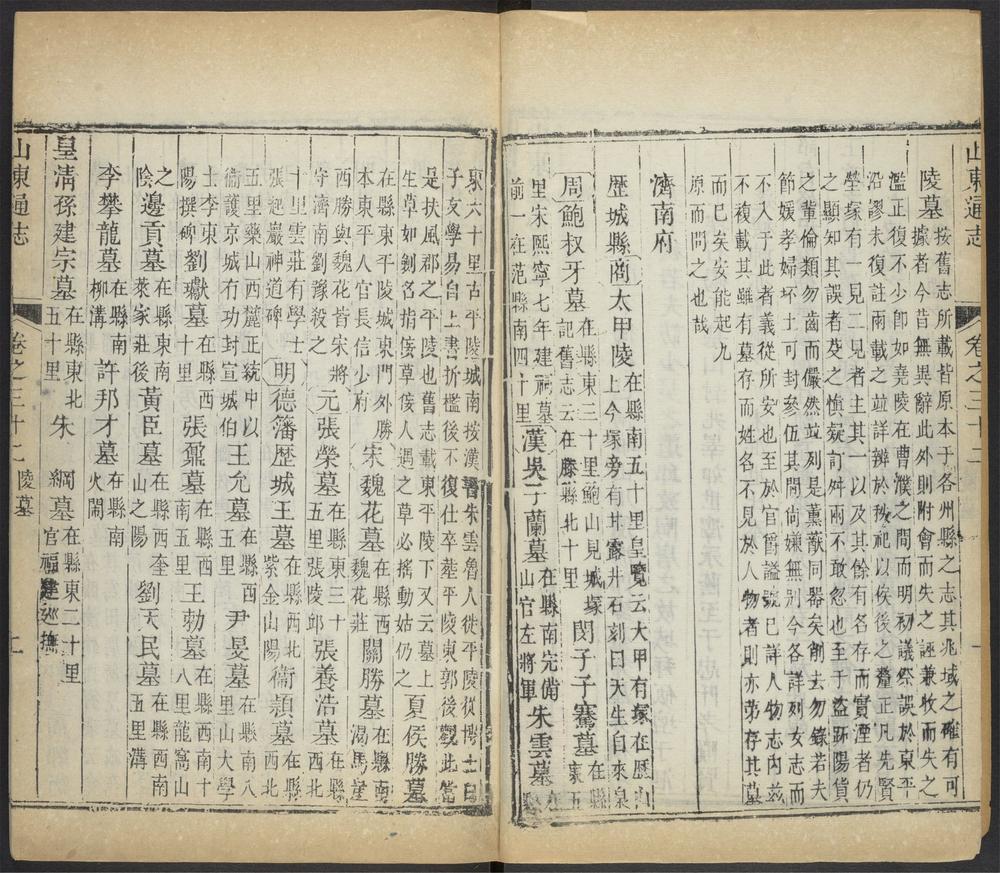 山東通志
卷之三十二
陵墓 按舊志所載皆原本于各州縣之志其兆域之確有可
據者今昔無異辭此外則附會而失之誣兼收而失之
濫正復不少卽如堯陵在曹濮之間而明初議祭誤於東平
沿謬未復註兩載之竝詳辨於秩祀以俟後之釐正凡先賢
塋塚有一見二見者主其一以及其餘有名存而實湮者仍
之顯知其誤者芟之愼疑訂舛兩不敢忽也至于盜跖陽貨
之輩倫類勿齒而儼然並列是薰蕕同器矣削去勿錄若夫
節媛孝婦坏土可封參伍其間尙嫌無別今各詳列女志而
不入于此者義從所安也至於官爵謚號已詳人物志內茲
不複載其有雖存而姓名不見於人物者則亦第存其墓
而已矣安能起九
原而問之也哉
濟南府
歷城縣 商太甲陵 在縣南五十里皇覽云太甲有塚在歷山
上今塚旁有井露井石刻曰天生自來泉
周鮑叔牙墓 在縣東三十里鮑山見城塚
記舊志云在滕縣北十里 閔子騫墓 在縣
東五
里宋熙寧七年建祠墓
前一在范縣南四十里 漢吳子蘭墓 在縣南完備
山官左將軍 朱雲墓 在縣
東六十里古平陵城南按漢書朱雲魯人徙平陵從博士白
子友學易自上書折檻後不復仕卒塟平陵東郭後觀此當
是扶風郡之平陵也舊志載東平陵下又云墓上
生草如劍名指佞草佞人遇之草必搖動姑仍之 夏侯勝墓
在縣東平陵城東門外勝
本東平人官長信少府 宋魏花墓 在縣西
魏花莊 關勝墓 在縣南
渴馬崖
西勝與魏花皆宋將
守濟南劉豫殺之 元張榮墓 在縣東三十
五里張陵邱 張養浩墓 在縣
西北
十里雲莊有學士
張起巖神道碑 明德藩歷城王墓 在縣西北
紫金山陽 衞頴墓 在縣
西北
五里藥山西麓正統中以
衞護京城有功封宣城伯 王允墓 在縣西
五里 尹旻墓 在縣南八
里山大學
士李東
陽撰碑 劉瓛墓 在縣西
十里 張鼐墓 在縣西
南五里 王勅墓 在縣西南十
八里龍窩山
之
陰 邊貢墓 在縣東南
萊家莊後 黃臣墓 在縣西奎
山之陽 劉天民墓 在縣西南
五里溝
李攀龍墓 在縣南
柳溝 許邦才墓 在縣南
火閘
皇淸孫建宗墓 在縣東北
五十里 朱綱墓 在縣東二十里
官福建巡撫
山東通志
卷之三十二 陵墓